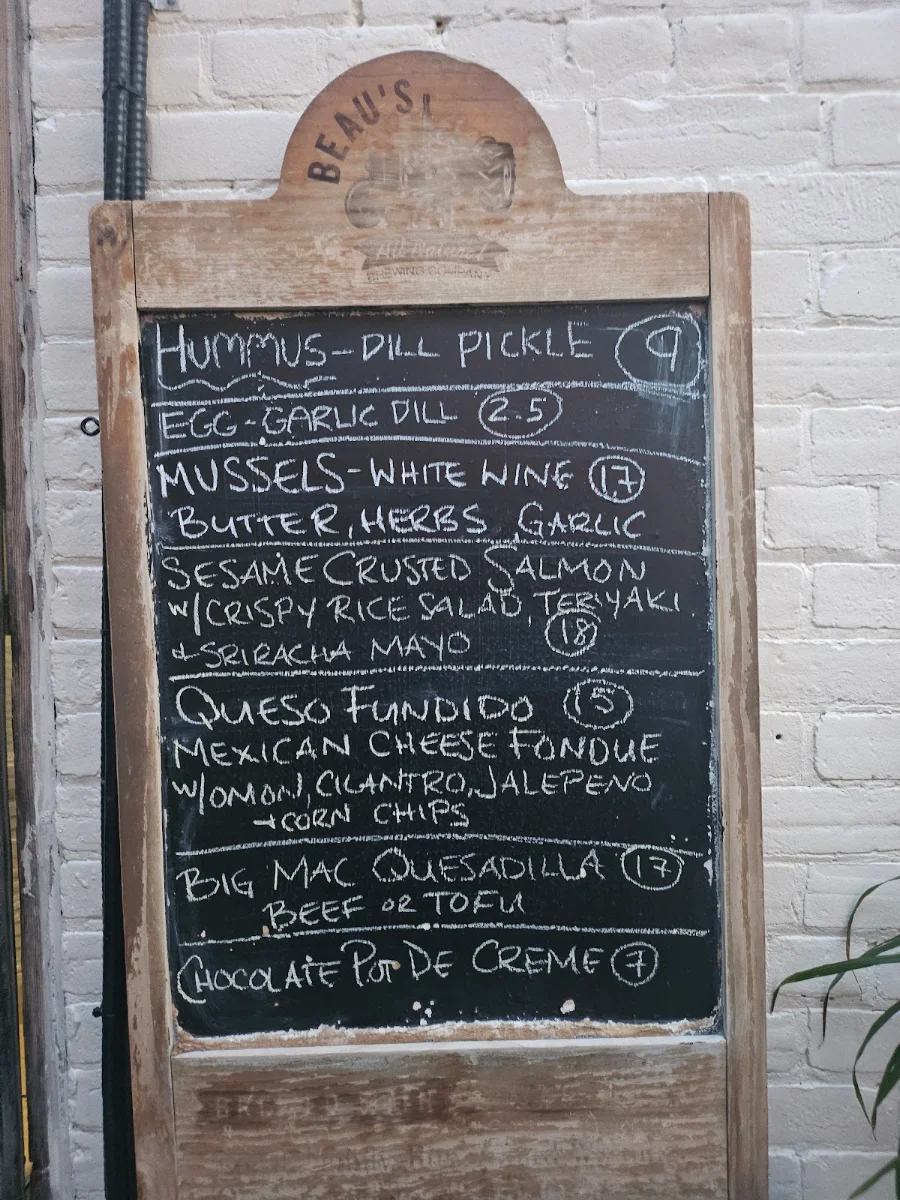 BEAU'S
All Natural
BREWING COMPANY
HUMMUS - DILL PICKLE 9
EGG - GARLIC DILL 2.5
MUSSELS - WHITE WINE 17
BUTTER, HERBS, GARLIC
SESAME CRUSTED SALMON
W/CRISPY RICE SALAD, TERIYAKI
+ SRIRACHA MAYO 18
QUESO FUNDIDO 15
MEXICAN CHEESE FONDUE
W/OMON, CILANTRO, JALEPENO
+ CORN CHIPS
BIG MAC QUESADILLA 17
BEEF OR TOFU
CHOCOLATE POT DE CREME 7